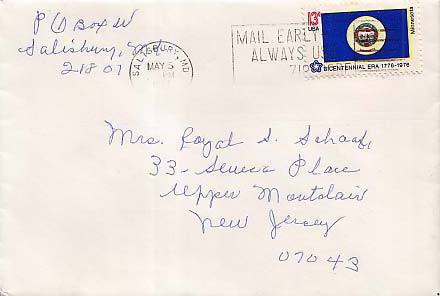 P O Box W
Salisbury, Md
21801
SALISBURY, MD
MAY 5
PM
MAIL EARLY
ALWAYS US
ZIP
13c
USA
Minnesota
BICENTENNIAL ERA 1776-1976
Mrs. Royal S. Schaaf,
33- Seneca Place
Upper Montclair
New Jersey
07043